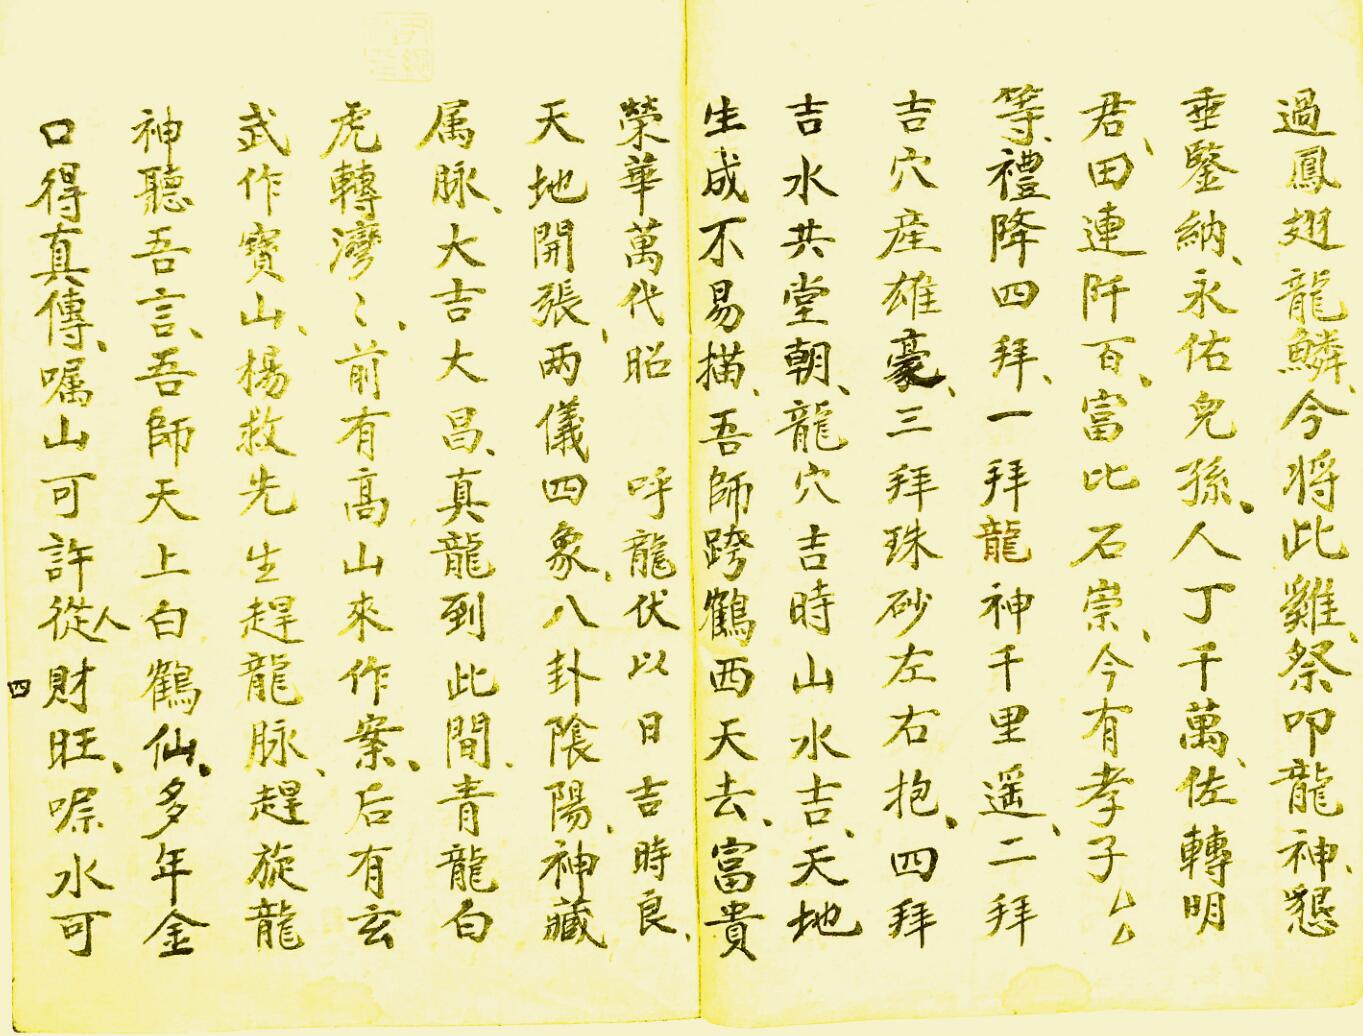 過鳳翅龍鱗、今将此雞、祭叩龍神、懇
垂鑒納、永佑兒孫、人丁千萬、佐轉明
君、田連阡百、富比石崇、今有孝子厶厶
等、禮降四拜、一拜龍神千里遥、二拜
吉穴産雄豪、三拜珠砂左右抱、四拜
吉水共堂朝、龍穴吉時山水吉、天地
生成不易描、吾師跨鶴西天去、富貴
榮華萬代昭　呼龍伏以日吉時良、
天地開張、两儀四象、八卦陰陽、神藏
属脉、大吉大昌、真龍到此間、青龍白
虎轉灣〻、前有高山來作案、后有玄
武作寳山、楊救先生趕龍脉、趕旋龍
神聽吾言、吾師天上白鶴仙、多年金
口得真傳、嘱山可許從人財旺、嘱水可
四